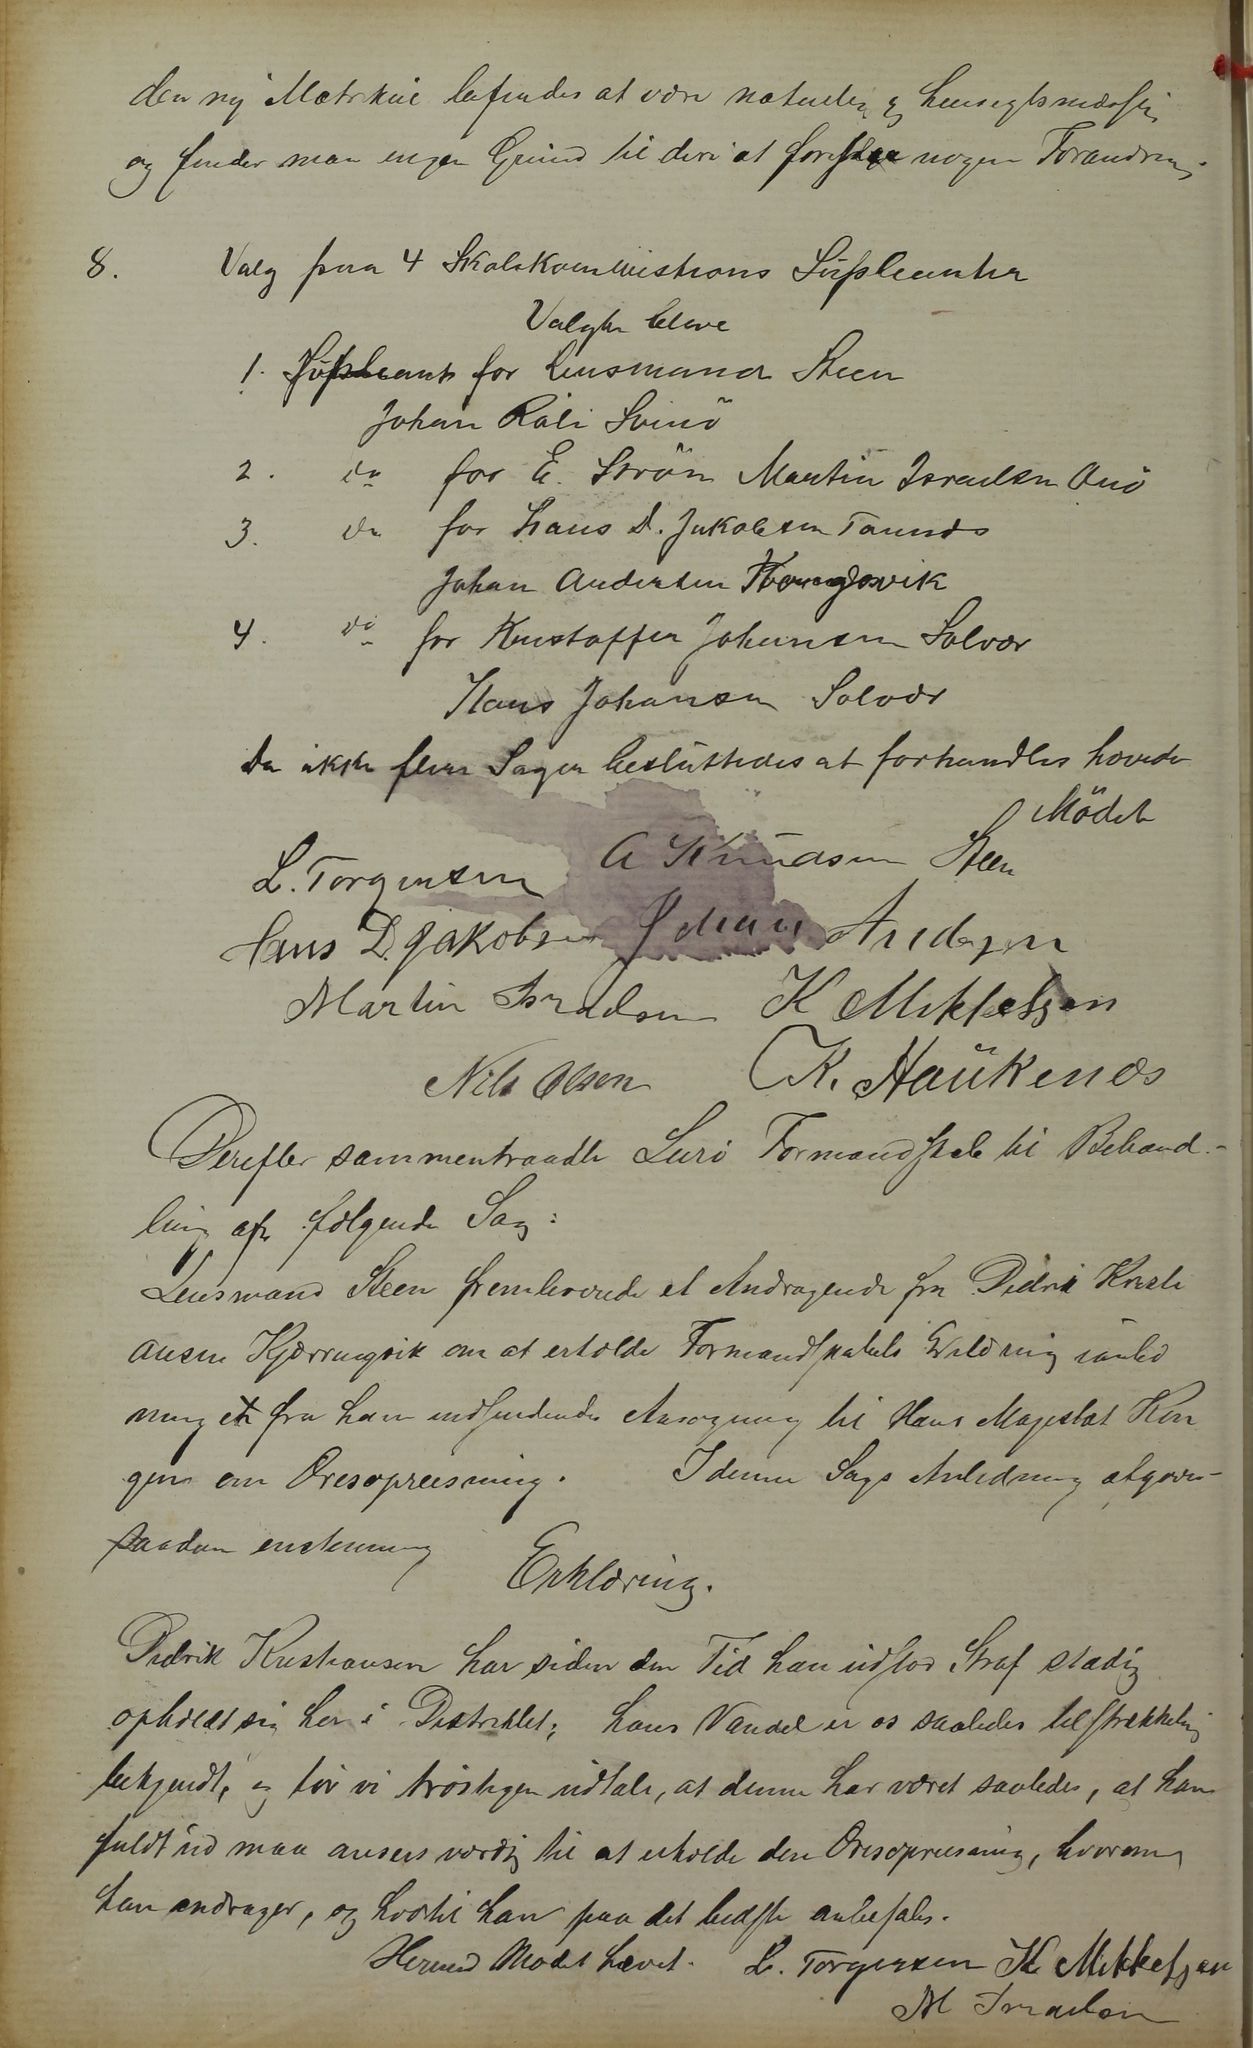 den ny Matrikul befindes at være naturlig og hensigtsmæssig,
og finder man ingen Grund til deri at foreslaa nogen Forandring.
8. Valg paa 4 Skolekommissions Suppleanter
Valgte bleve
1. Suppleant for Lensmand Steen
Johan Råli Svinö
2. do for E. Strøm Martin Israelsen Onö
3. do for Hans D. Jakobsen Tonnes
Johan Andersen Kongsvik
4. do for Kristoffer Johansen Solvær
Hans Johansen Solvær
Da ikke flere Sager besluttedes at forhandles hævedes
Mödet
L. Torgersen A Knudsen Steen
Hans D. Jakobsen Johan Andersen
Martin Israelsen K Mikkelsen
Nils Olsen K. Haukenæs
Derefter sammentraadte Lurö Formandskab til Behand-
ling af følgende Sag:
Lensmand Steen fremleverede et Andragende fra Didrik Kristi
ansen Kjerringvik om at erholde Formandskabets Erklæring i anled
ning et fra ham indsendendes Ansøgning til Hans Majestæt Kon
gen om Æresopreisning. I denne Sags Anledning afgaves
saadan enstemmig
Erklæring.
Didrik Kristiansen har siden den Tid han udstod Straf stadig
opholdt sig her i Distriktet; hans Vandel er os saaledes tilstrækkelig
bekjendt, og tör vi tröstigen udtale, at denne har været saaledes, at han
fuldt ud maa ansees værdig til at erholde den Æresopreisning, hvorom
han andrager, og hvortil han paa det bedste anbefales.
Hermed Mødet hævet. L. Torgersen K Mikkelsen
M Israelsen